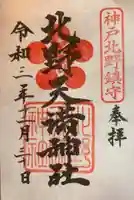 神戸北野鎮守
奉拝
北野天満神社
令和三年十一月三十日